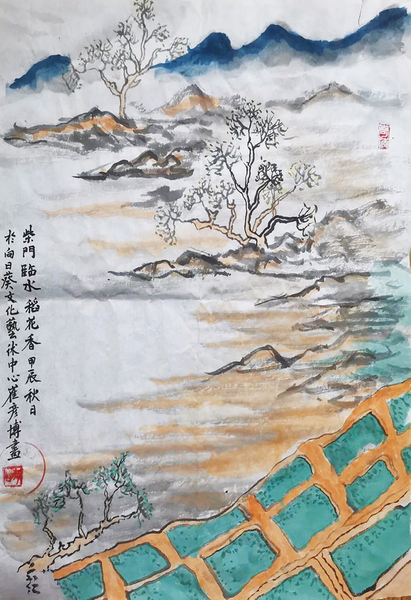 柴門臨水稻花香甲辰秋日
於向日葵文化藝术中心崔彦博畫